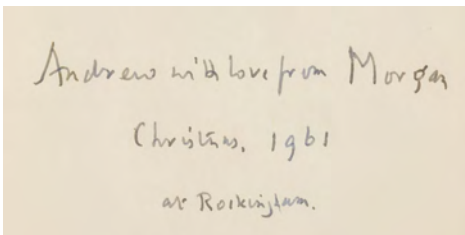 Andrew with love from Morgan
Christmas, 1961
at Rockingham.